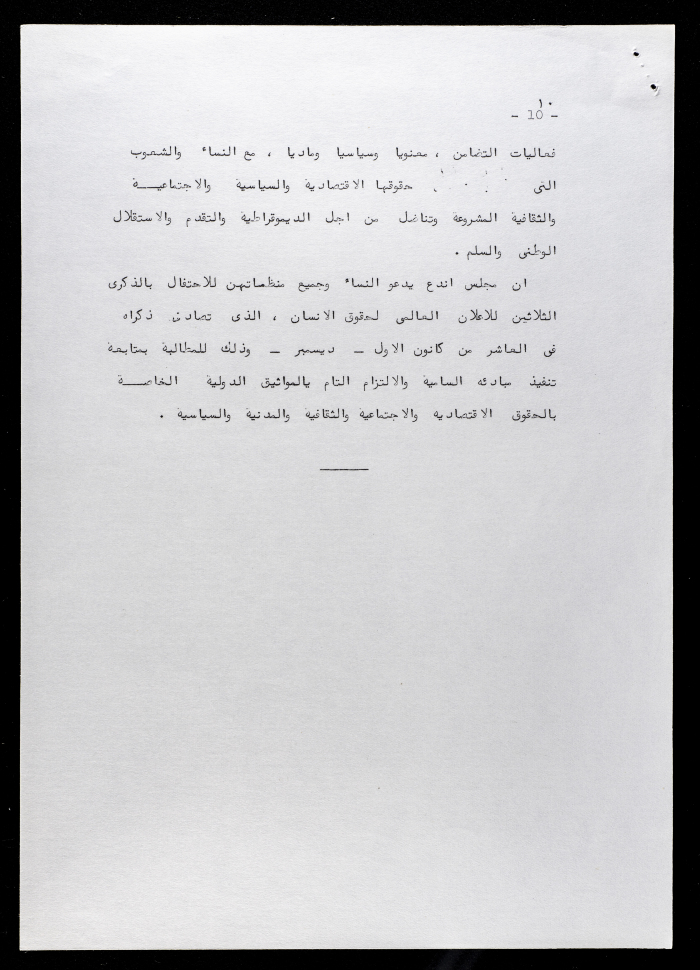 ١٠
- 10 -
فعاليات التضامن ، معنويا وسياسيا وماديا ، مع النساء والشعوب
التى حقوقها الاقتصادية والسياسية والاجتماعيــة
والثقافية المشروعة وتناضل من اجل الديموقراطية والتقدم والاستقلال
الوطنى والسلم .
ان مجلس اندع يدعو النساء وجميع منظماتهن للاحتفال بالذكرى
الثلاثين للاعلان العالمى لحقوق الانسان ، الذى تصادف ذكراه
فى العاشر من كانون الاول – ديسمبر – وذلك للمطالبة بمتابعة
تنفيذ مبادئه السامية والالتزام التام بالمواثيق الدولية الخاصــة
بالحقوق الاقتصادية والاجتماعية والثقافية والمدنية والسياسية .